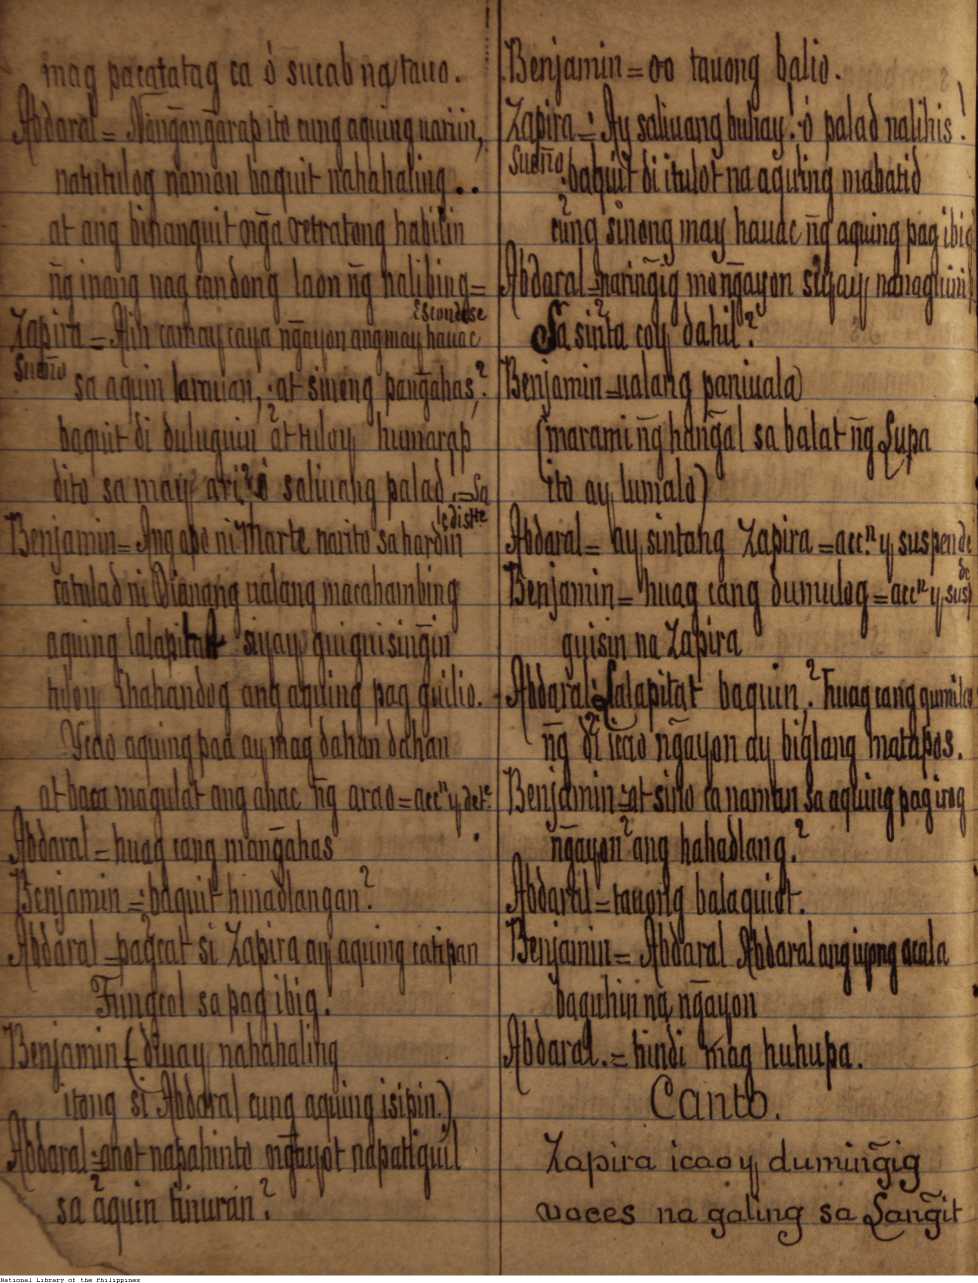 mag pacatatag ca ó sucab ng tauo.
Abdaral = Nangangarap ito cung aquing uariin,
natutulog naman baquit nahahaling ..
at ang binanguit ng̃a retratong habilin
ng̃ inang nag candong laon ng̃ halibing =
Escondese
Zapira = Aih camay caya ng̃ayon ang may hauac
Sueño
sa aquin larauan, at sinong pang̃ahas,?
baquit di duluguin at tuloy humarap
dito sa may ari? ó saliuang palad = Sa
le distte
Benjamin = Ang apo ni Marte narito sa hardin
catulad ni Dianang ualang macahambing
aquing lalapitat siyay guiguising̃in
tuloy ihahandog ang aquing pag guilio.
Ycao aquing paa ay mag dahan dahan
at baca magulat ang anac ng̃ arao = acc.n y det.e
Abdaral = huag cang mang̃ahas
Benjamin = ¿baquit hinadlangan?
Abdaral = pagcat si Zapira ay aquing catipan
Fungcol sa pag ibig.
Benjamin (diuay nahahaling
itong si Abdaral cung aquing isipin.)
Abdaral = anot napahinto ng̃ayot napatiguil
sa aquin tinuran?
Benjamin = oo tauong balio.
Zapira = Ay saliuang buhay! ó palad nalihis!
Sueño
baquit di itulot na aquing mabatid
cung sinong may hauac ng̃ aquing pag ibig
Abdaral = naring̃ig mo ng̃ayon siyay nanaguinip
Sa sinta coy dahil?
Benjamin = ualang paniuala)
(marami ng̃ hang̃al sa balat ng̃ Lupa
ito ay lumalo)
Abdaral = ay sintang Zapira = acc.n y suspende
Benjamin = huag cang dumulog = acc.n y susp
de
guisin na Zapira
Abdaral = Lalapitat baquin,? huag cang gumilao
ng̃ di icao ng̃ayon ay biglang matapos.
Benjamin = at sino ca naman sa aquing pag irog
ng̃ayon ang hahadlang?
Abdaral = tauong balaquiot.
Benjamin = Abdaral Abdaral ang iyong acala
baguhin na ng̃ayon
Abdaral. = hindi mag huhupa.
Canto.
Zapira icaoy duming̃ig
voces na galing sa Lang̃it
National Library of the Philippines